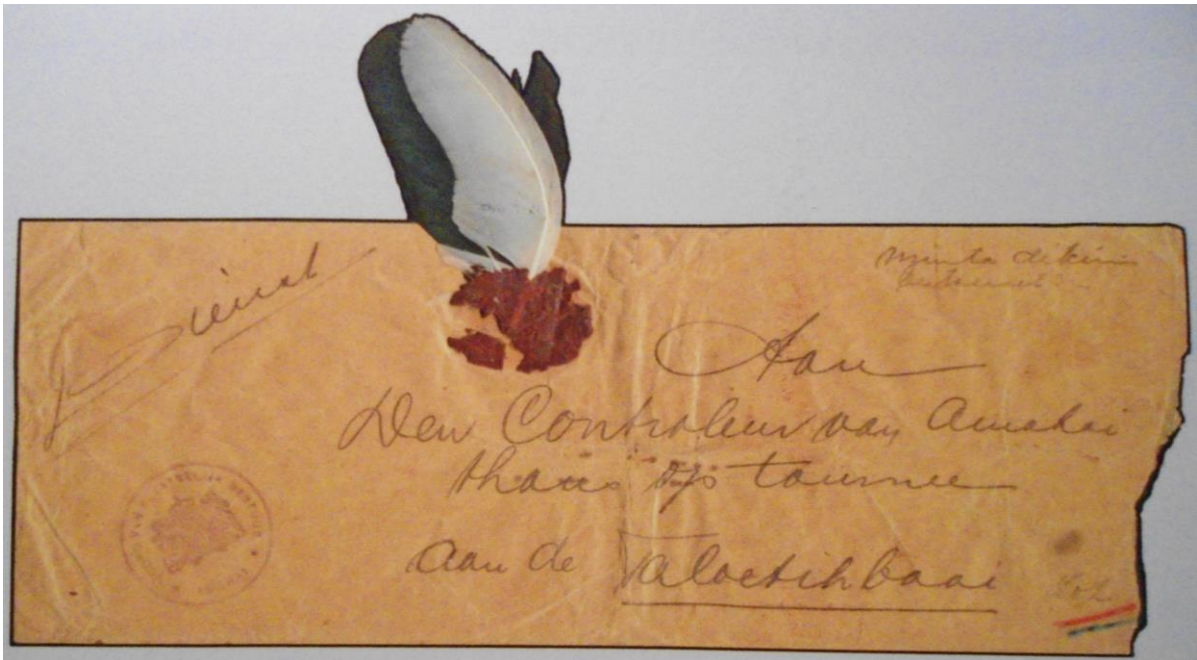 Dienst
minta dikirim
Aan
Den Controleur van Amahai
thans op tournee
aan de Taloetihbaai